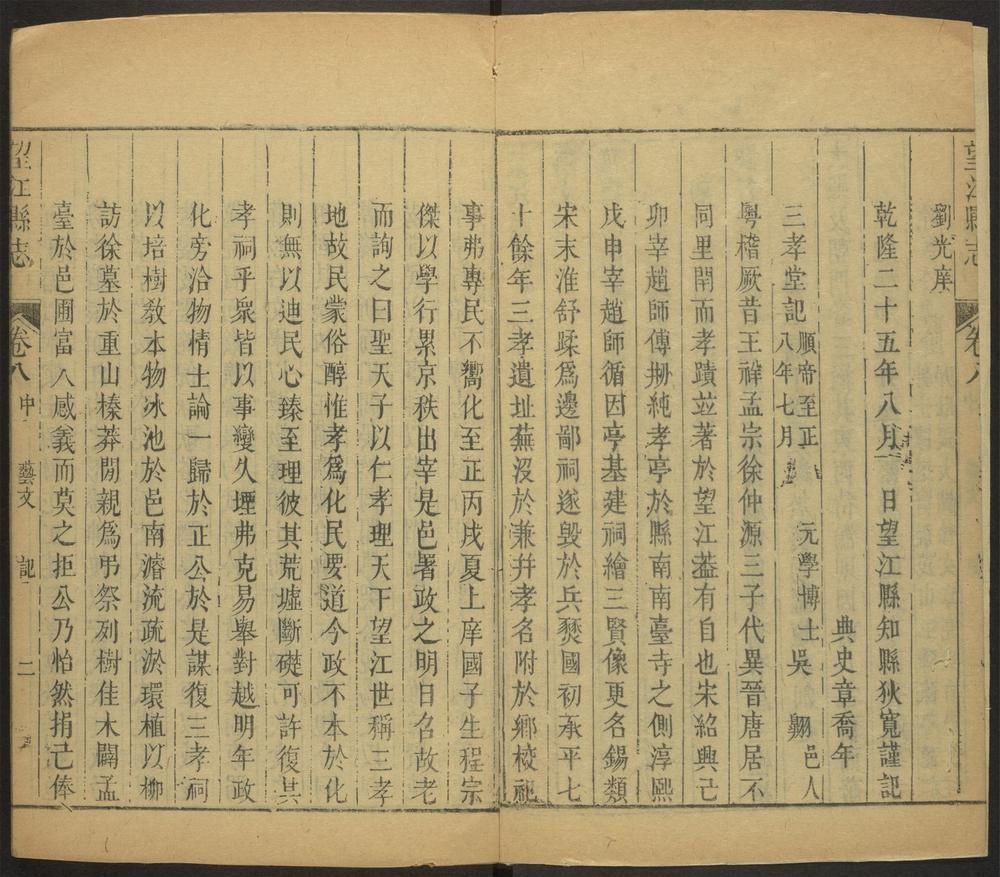 望江縣志 卷八
劉光庠
乾隆二十五年八月 日望江縣知縣狄寬謹記
典史章喬年
三孝堂記 順帝至正八年七月 元學博士吳 翺邑人
粤稽厥昔王祥孟宗徐仲源三子代異晉唐居不
同里閈而孝蹟竝著於望江葢有自也宋紹興己
卯宰趙師傅剏純孝亭於縣南南臺寺之側淳熙
戊申宰趙師循因亭基建祠繪三賢像更名錫類
宋末淮舒蹂爲邊鄙祠遂毁於兵燹國初承平七
十餘年三孝遺址蕪沒於兼幷孝名附於鄉校祀
事弗專民不嚮化至正丙戌夏上庠國子生程宗
傑以學行累京秩出宰是邑署政之明日召故老
而詢之曰聖天子以仁孝理天下望江世稱三孝
地故民蒙俗醇惟孝爲化民要道今政不本於化
則無以迪民心臻至理彼其荒墟斷礎可許復其
孝祠乎衆皆以事變久堙弗克易舉對越明年政
化旁洽物情士論一歸於正公於是謀復三孝祠
以培樹敎本物冰池於邑南濬流疏淤環植以柳
訪徐墓於重山榛莽閒親爲弔祭列樹佳木闢孟
臺於邑圃富人感義而莫之拒公乃怡然捐己俸
望江縣志 卷八中 藝文 記 二